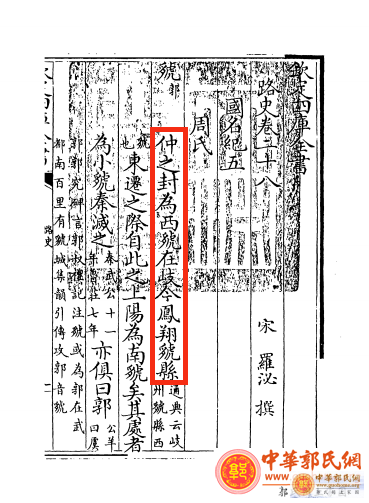 欽定四庫全書
路史卷二十八
宋 羅泌 撰
國名紀五
周氏
虢 郭
仲之封為西虢在岐今鳳翔虢縣
通典云岐
州虢縣西
虢
也
東遷之際自此之上陽為南虢矣其處者
為小虢秦滅之
秦武公十一
年魯莊七年
亦俱曰郭
公羊
曰虞
郭郭
注號或為郭在武
都南百里有虢城集韻引傳攻郭音虢
路史
中華郭氏網